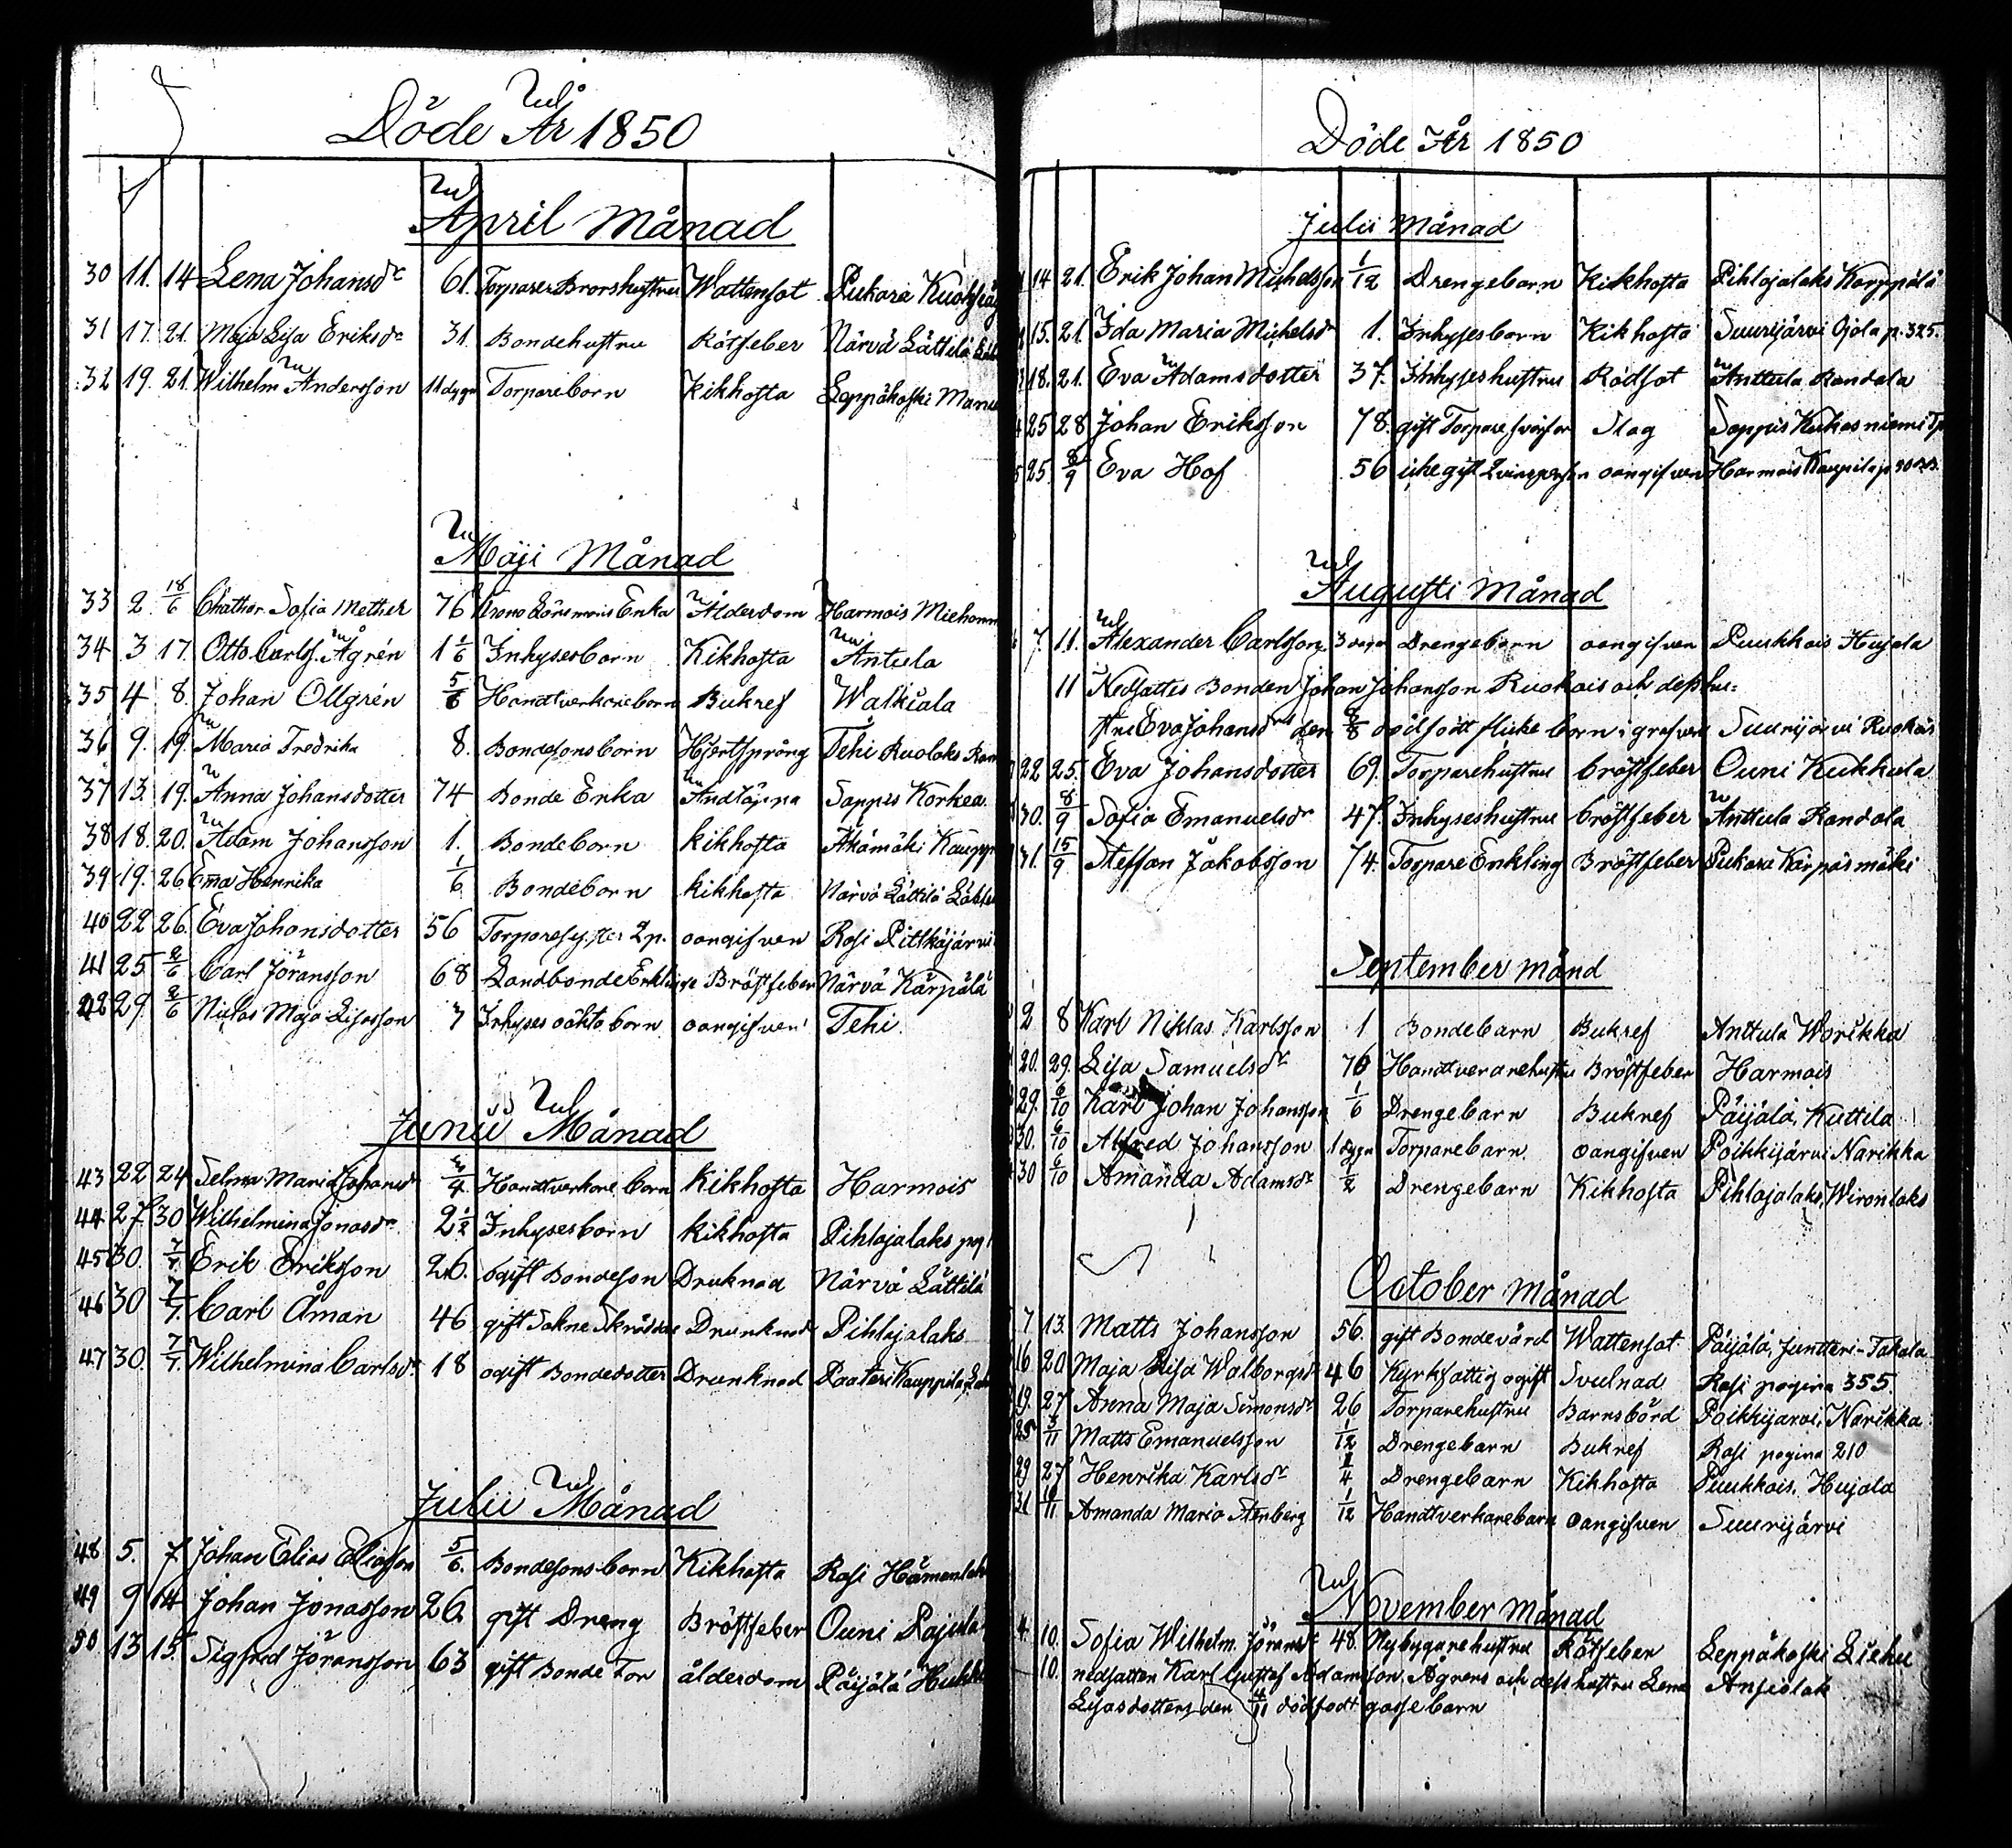 Döde År 1850
April Månad
30 11. 14 Lena Johansdr 61. Torpare Brorshustru Wattensot Pukara
31 17. 21. Maja Lisa Eriksdr 31. Bondehustru Rötfeber Närvä Lättilä
32 19. 21. Wilhelm Andersson 11 dygn Torparebarn Kikhosta Leppäkoski
Maji Månad
33 2. 18/6 Cathar. Sofia Mether 76 Krono Länsmans Enka Ålderdom Harmois
34 3 17. Otto Carlss. Ågrén 1 1/6 Inhysesbarn Kikhosta Antula
35 4 8. Johan Ollgrén 5/6 Handtverkarebarn Bukref Walkiala
36 9. 19. Maria Fredrika 8. Bondesonsbarn Hjertsprång Tehi Ruolaks
37 13. 19. Anna Johansdotter 74 Bonde Enka Andtäppa Sappis Korkea
38 18. 20. Adam Johansson 1. Bondebarn kikhosta Äkämäki
39 19. 26 Ema Henrika 1/6 Bondebarn kikhosta Närvä Lättilä
40 22 26. Eva Johansdotter 56 Torparesyster oangifven Rasi Pitkäjärvi
41 25 2/6 Carl Jöransson 68 Landbonde Enkling Bröstfeber Närvä Kärpälä
42 29. 2/6 Niclas Maja Lisasson 7 Inhyses oäkta barn oangifven Tehi.
Junii Månad
43 22 24 Selma Maria Johansdr /4. Handtverkare barn kikhosta Harmois
44 27 30 Wilhelmina Jonasdr 2 1/2 Inhysesbarn kikhosta Pihlajalaks
45 30. 7/7. Erik Eriksson 26. ogift Bondeson Druknad Närvä Lättilä
46 30 7/7. Carl Åman 46 gift Sokne Skräddare Drunknad Pihlajalaks
47 30. 7/7. Wilhelmina Carlsdr 18 ogift Bondedotter Drunknad Paateri Kauppila
Julii Månad
48 5. 7. Johan Elias Eliasson 5/6. Bondesonsbarn Kikhosta Rasi
49 9 14 Johan Jonasson 26. gift Dreng Bröstfeber Ouni Pajula
50 13 15. Sigfrid Jöransson 63 gift Bonde Far ålderdom Päijälä
Döde År 1850
Julii Månad
14 21. Erik Johan Michelsson 1/12 Drengebarn Kikhosta Pihlajalaks Karppälä
15. 21. Ida Maria Michelsdr 1. Inhysesbarn Kikhosta Suurijärvi Ojola p. 325.
18. 21. Eva Adamsdotter 37. Inhyseshustru Rödsot Anttula Randala
25 28 Johan Eriksson 78. gift Torpare Slag Sappis
25. 8/9 Eva Hof 56 icke gift oangifven Harmois Kaupila
Augusti Månad
7. 11. Alexander Carlsson 3 dagar Drengebarn oangifven Puukkois Hujala
11 Nedsattes Bonden Johan Johansson Ruokois och dess hu=
stru Eva Johansdrs den 8/8 dödfödt flicke barn i grafven Suurijärvi Ruokois
22 25. Eva Johansdotter 69. Torparehustru bröstfeber Ouni Kukkula
30. 8/9 Sofia Emanuelsdr 47. Inhyseshustru bröstfeber Anttula Randala
31. 15/9 Steffan Jakobsson 74. Torpare Enkling Bröstfeber Pukara Kärpäsmäki
September månd
2 8 Karl Niklas Karlsson 1 Bondebarn Bukref Anttula Worikka
20. 29. Lisa Samuelsdr 76 Handtverarehustru Bröstfeber Harmois
29. 6/10 Karl Johan Johansson 1/6 Drengebarn Bukref Päijälä, Kuttila
30. 6/10 Alfred Johansson 1 dygn Torparebarn oangifven Poikkijärvi Narikka
30 6/10 Amanda Adamsdr 1/2 Drengebarn Kikhosta Pihlajalaks, Wironlaks
October månad
7 13. Matts Johansson 56. gift Bondevärd Wattensot Päijälä, Junttari-Takala
16 20 Maja Lisa Walborgsdr 46 Kyrkfattig ogift Svulnad Rasi pagina 355.
19. 27 Anna Maja Simonsdr 26 Torparehustru Barnsbörd Poikkijarvi, Narikka
25 3/11 Matts Emanuelsson 1/12 Drengebarn Bukref Rasi pagina 210
29 27 Henrika Karlsdr 1/4 Drengebarn Kikhosta Puukkois, Hujala
31 Amanda Maria Stenberg 1/12 Handtverkarebarn oangifven Suurijärvi
November månad
4. 10. Sofia Wilhelm. Jöransdr 48. Nybyggarehustru Rötfeber Leppäkoski Liehu
10. nedsatten Karl Gustaf Adamsson Ågrens och dess hustru Lena
Lisasdotters den 4/11 dödfödt gossebarn